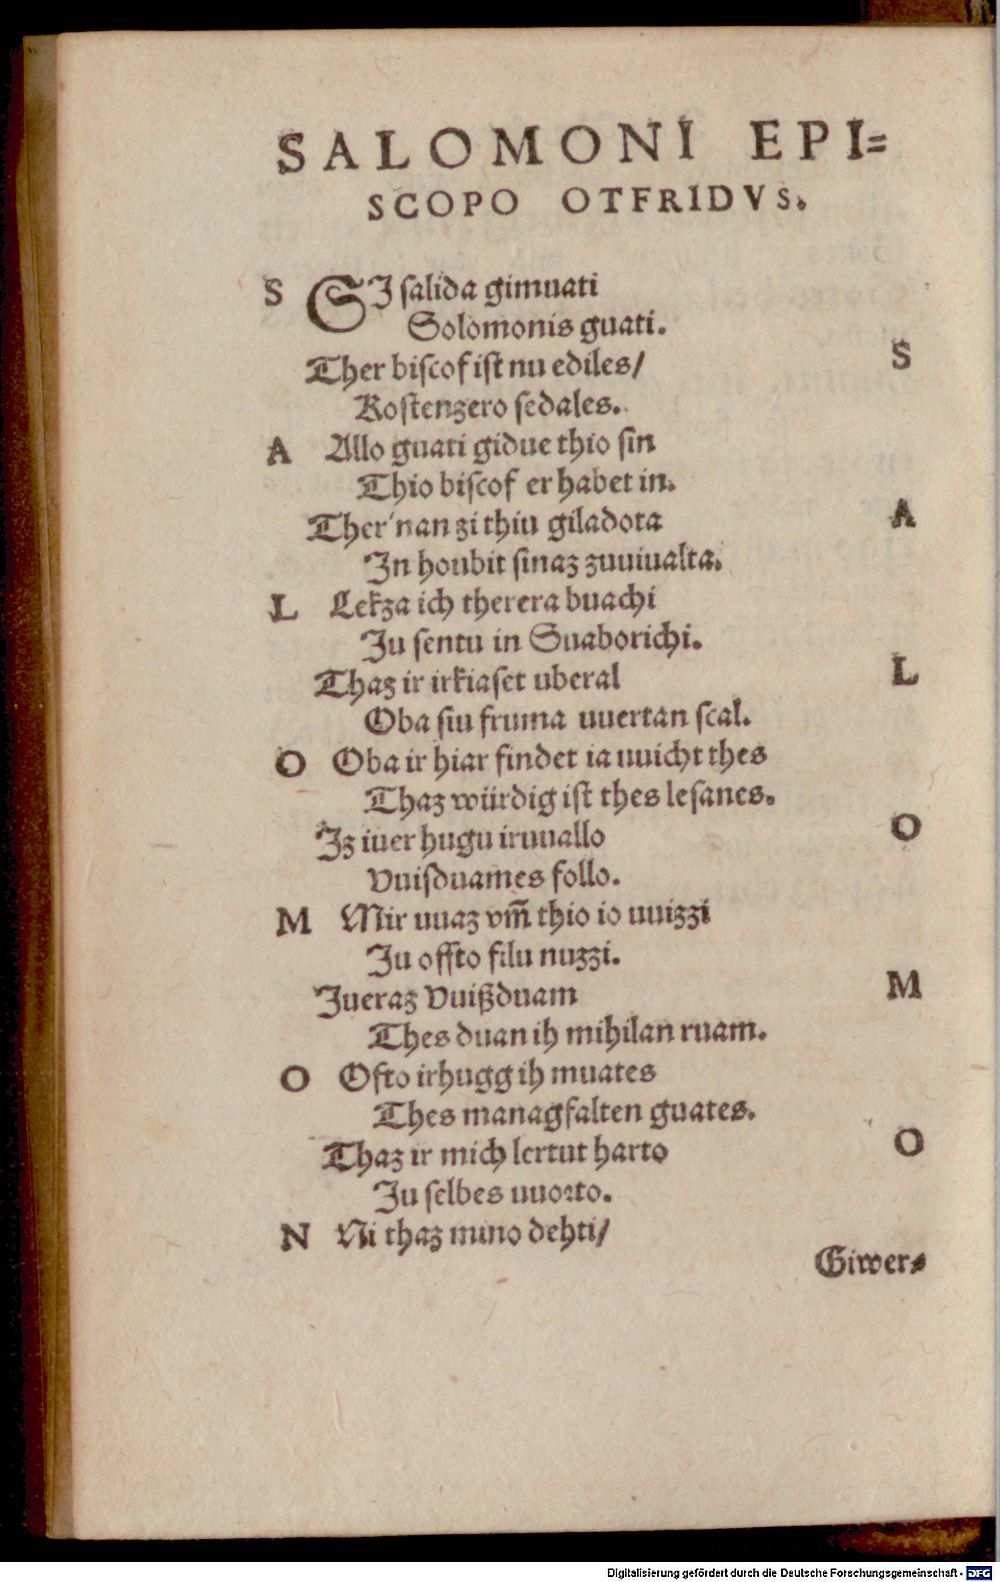 SALOMONI EPI=
SCOPO OTFRIDVS.
S SJ ſalida gimuati
Solomonis guati.
Ther biſcof iſt nu ediles/ S
Koſtenzero ſedales.
A Allo guati gidue thio ſin
Thio biſcof er habet in.
Ther'nan zi thiu giladota A
Jn houbit ſinaz zuuiualta.
L Lekza ich therera buachi
Ju ſentu in Suaborichi.
Thaz ir irkiaſet uberal L
Oba ſiu fruma uuertan ſcal.
O Oba ir hiar findet ia uuicht thes
Thaz würdig iſt thes leſanes.
Jz iuer hugu iruuallo O
Vuiſduames follo.
M Mir uuaz vm̃ thio io uuizzi
Ju offto filu nuzzi.
Jueraz Vuißduam M
Thes duan ih mihilan ruam.
O Ofto irhugg ih muates
Thes managfalten guates.
Thaz ir mich lertut harto O
Ju ſelbes uuoꝛto.
N Ni thaz mino dehti/
Giwer⸗
Digitalisierung gefördert durch die Deutsche Forschungsgemeinschaft - DFG